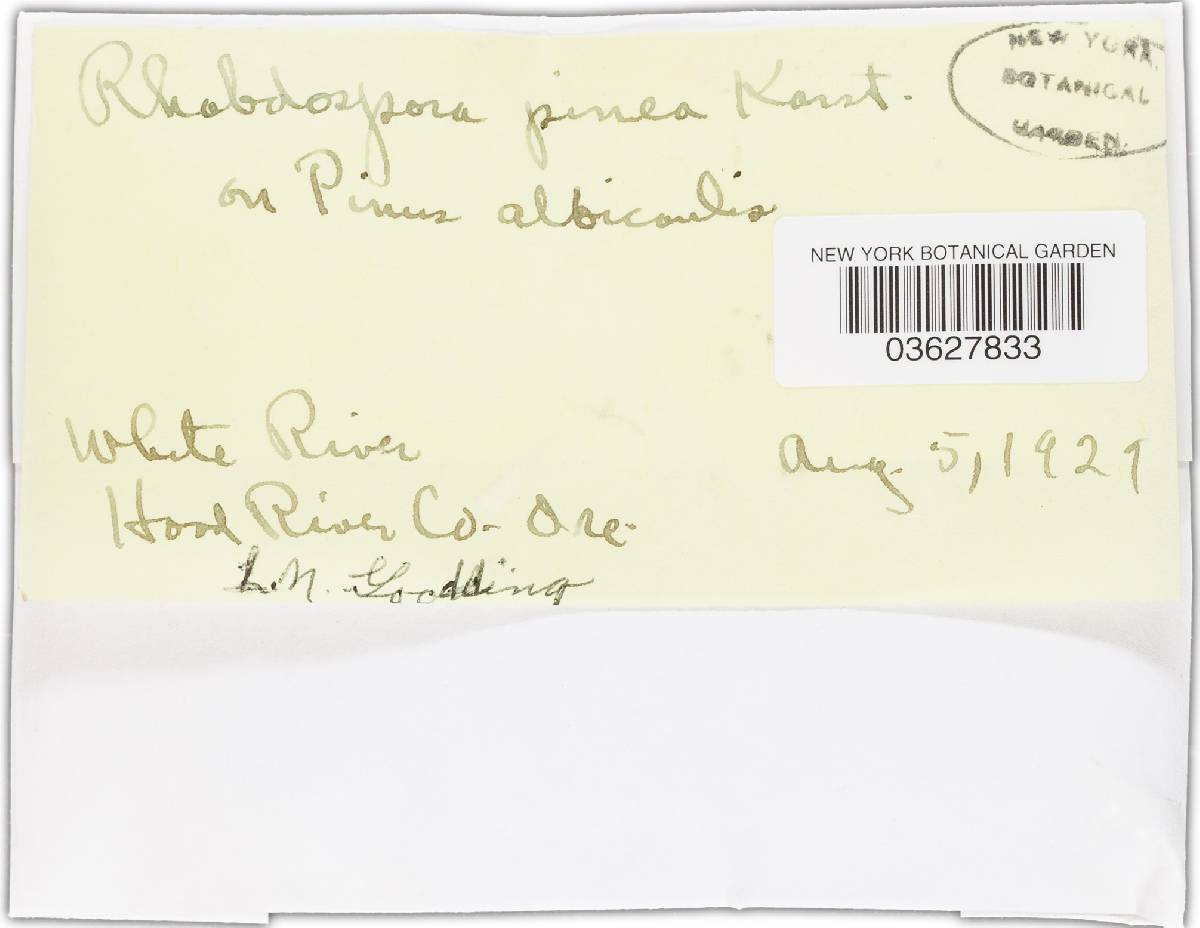 Rhabdospora pinea Karst.
on Pinus albicaulis
NEW YORK
BOTANICAL
GARDEN.
NEW YORK BOTANICAL GARDEN
03627833
White River
Aug. 5, 1929
Hood River Co. Ore.
L.N. Goodding